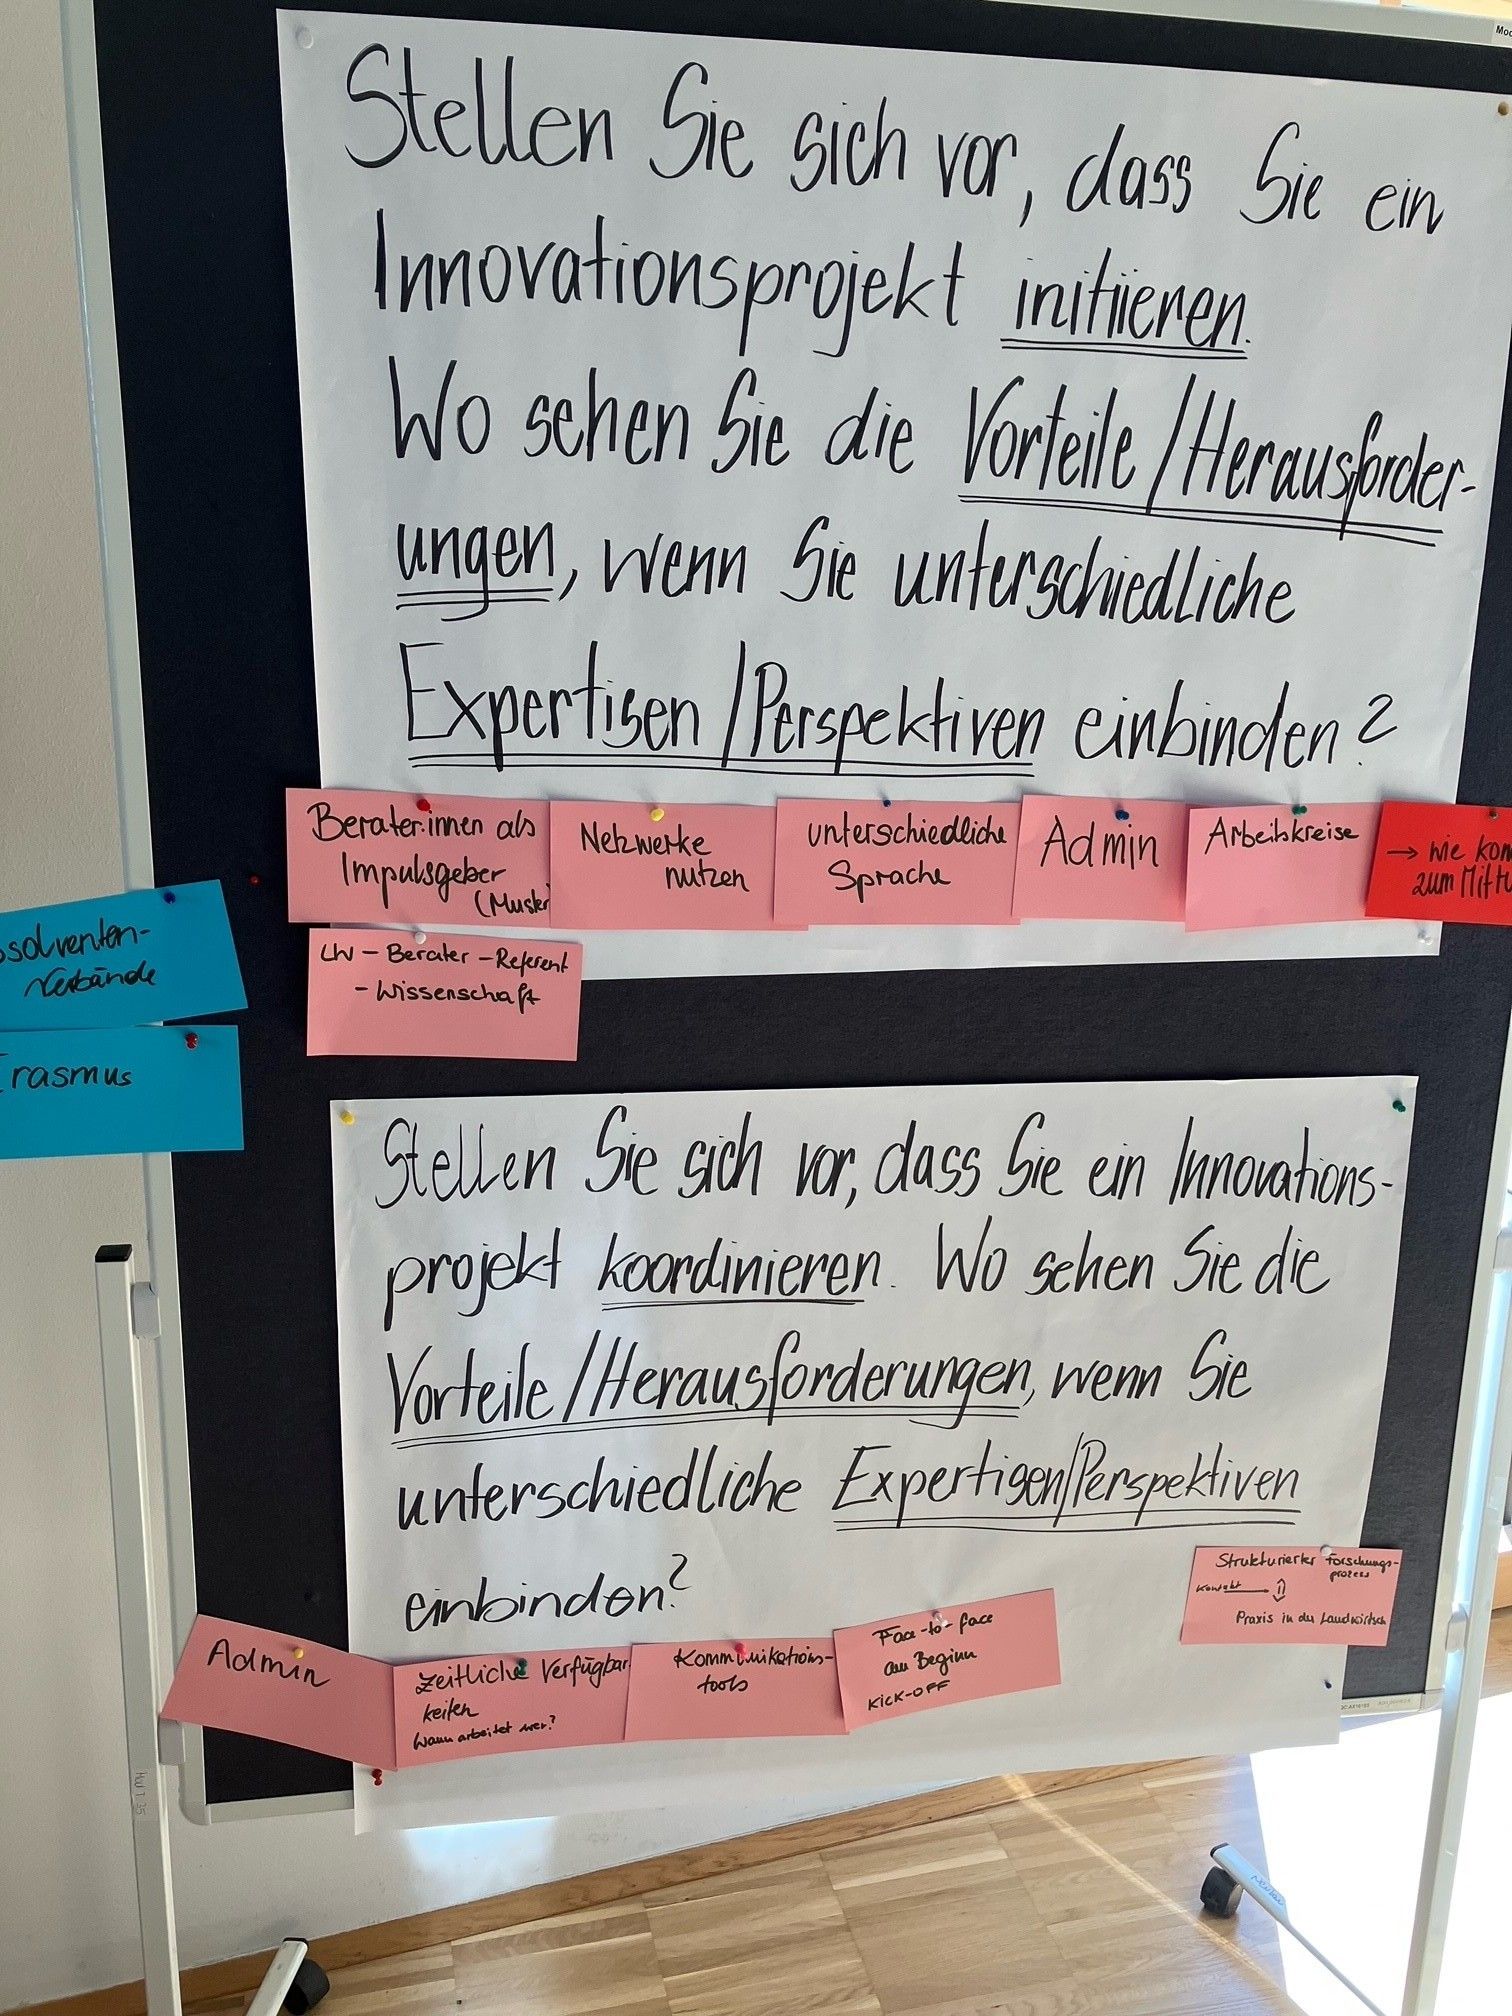 Stellen Sie sich vor, dass Sie ein
Innovationsprojekt initiieren.
Wo sehen Sie die Vorteile/Herausforder-
ungen, wenn Sie unterschiedliche
Expertisen/Perspektiven einbinden?
Berater:innen als
Impulsgeber
(Muster
Netzwerke
nutzen
unterschiedliche
Sprache
Admin
Arbeitskreise
→ wie kom
zum Mitt
LW - Berater - Referent
- Wissenschaft
bsolventen-
verbände
Erasmus
Stellen Sie sich vor, dass Sie ein Innovations-
projekt koordinieren. Wo sehen Sie die
Vorteile/Herausforderungen, wenn Sie
unterschiedliche Expertisen/Perspektiven
einbinden?
Strukturierter Forschungs-
prozess
Kontakt
Praxis in der Landwirtsch
Admin
Zeitliche Verfügbar
keiten
Wann arbeitet wer?
Kommunikations-
tools
Face-to-face
am Beginn
KICK-OFF